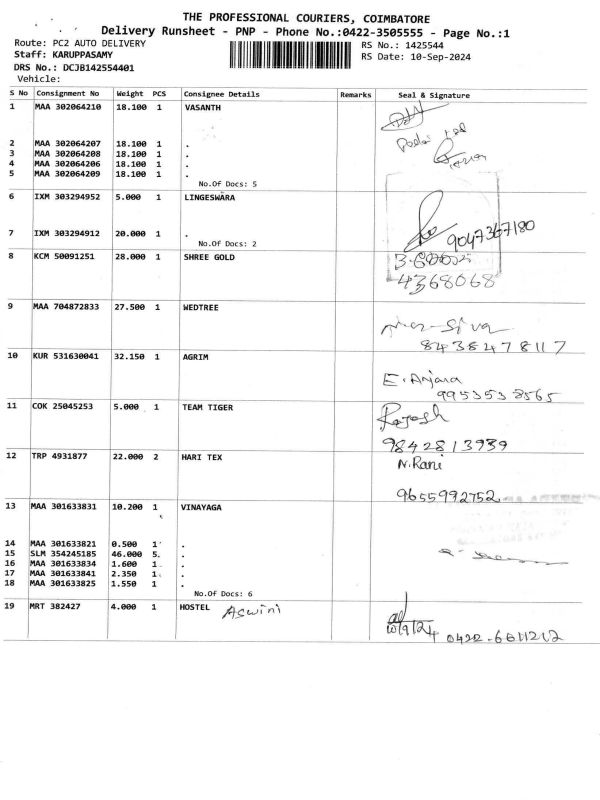 THE PROFESSIONAL COURIERS, COIMBATORE
Delivery Runsheet - PNP - Phone No.:0422-3505555 - Page No.:1
Route: PC2 AUTO DELIVERY RS No.: 1425544
Staff: KARUPPASAMY RS Date: 10-Sep-2024
DRS No.: DCJB142554401
Vehicle:
S No Consignment No Weight PCS Consignee Details Remarks Seal & Signature
1 MAA 302064210 18.100 1 VASANTH
2 MAA 302064207 18.100 1 .
3 MAA 302064208 18.100 1 .
4 MAA 302064206 18.100 1 .
5 MAA 302064209 18.100 1 .
No.Of Docs: 5
6 IXM 303294952 5.000 1 LINGESWARA
7 IXM 303294912 20.000 1 . 9047367180
No.Of Docs: 2
8 KCM 50091251 28.000 1 SHREE GOLD
4368068
9 MAA 704872833 27.500 1 WEDTREE
Siva
8438478117
10 KUR 531630041 32.150 1 AGRIM
E. Anjana
9953538565
11 COK 25045253 5.000 1 TEAM TIGER Rajesh
9842813939
12 TRP 4931877 22.000 2 HARI TEX N. Rani
9655992752
13 MAA 301633831 10.200 1 VINAYAGA
14 MAA 301633821 0.500 1 .
15 SLM 354245185 46.000 5 .
16 MAA 301633834 1.600 1 .
17 MAA 301633841 2.350 1 .
18 MAA 301633825 1.550 1 .
No.Of Docs: 6
19 MRT 382427 4.000 1 HOSTEL Aswini
10/9/24 0422-6611212